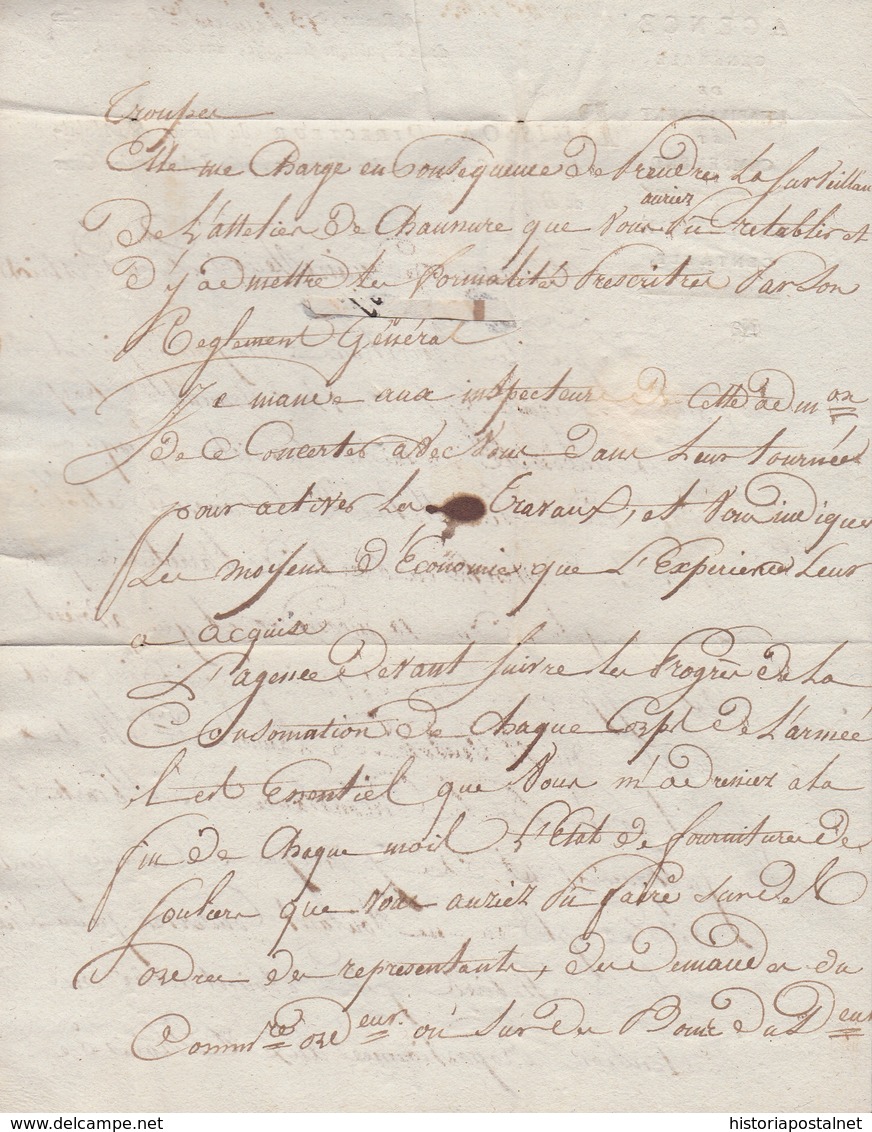 Troupes
Elle me Charge en Consequence de Prendre La Surveillan
auriez
De L'attelier de Chaussure que Vous Pû retablir et
d'y admettre les formalités Prescrittes Par Son
Reglement Général.
Je mande aux inspecteurs de cette adm on
de Ce Concerter avec Vous dans Leurs tournées
pour activer Les Travaux, et Vous indiquer
Les moyens d'Economies que L'Experience Leur
a acquise
L'agence devant Suivre les Progrès de La
Consomation de Chaque Corps de L'armée
il est Essentiel que Vous m'adressiez a la
fin de Chaque mois L'Etat de fournitures de
Souliers que Vous auriez Pû faire sur des
ordres des representants, des demandes du
Commres ordeur. où sur des Bons du Deur
historiapostalnet